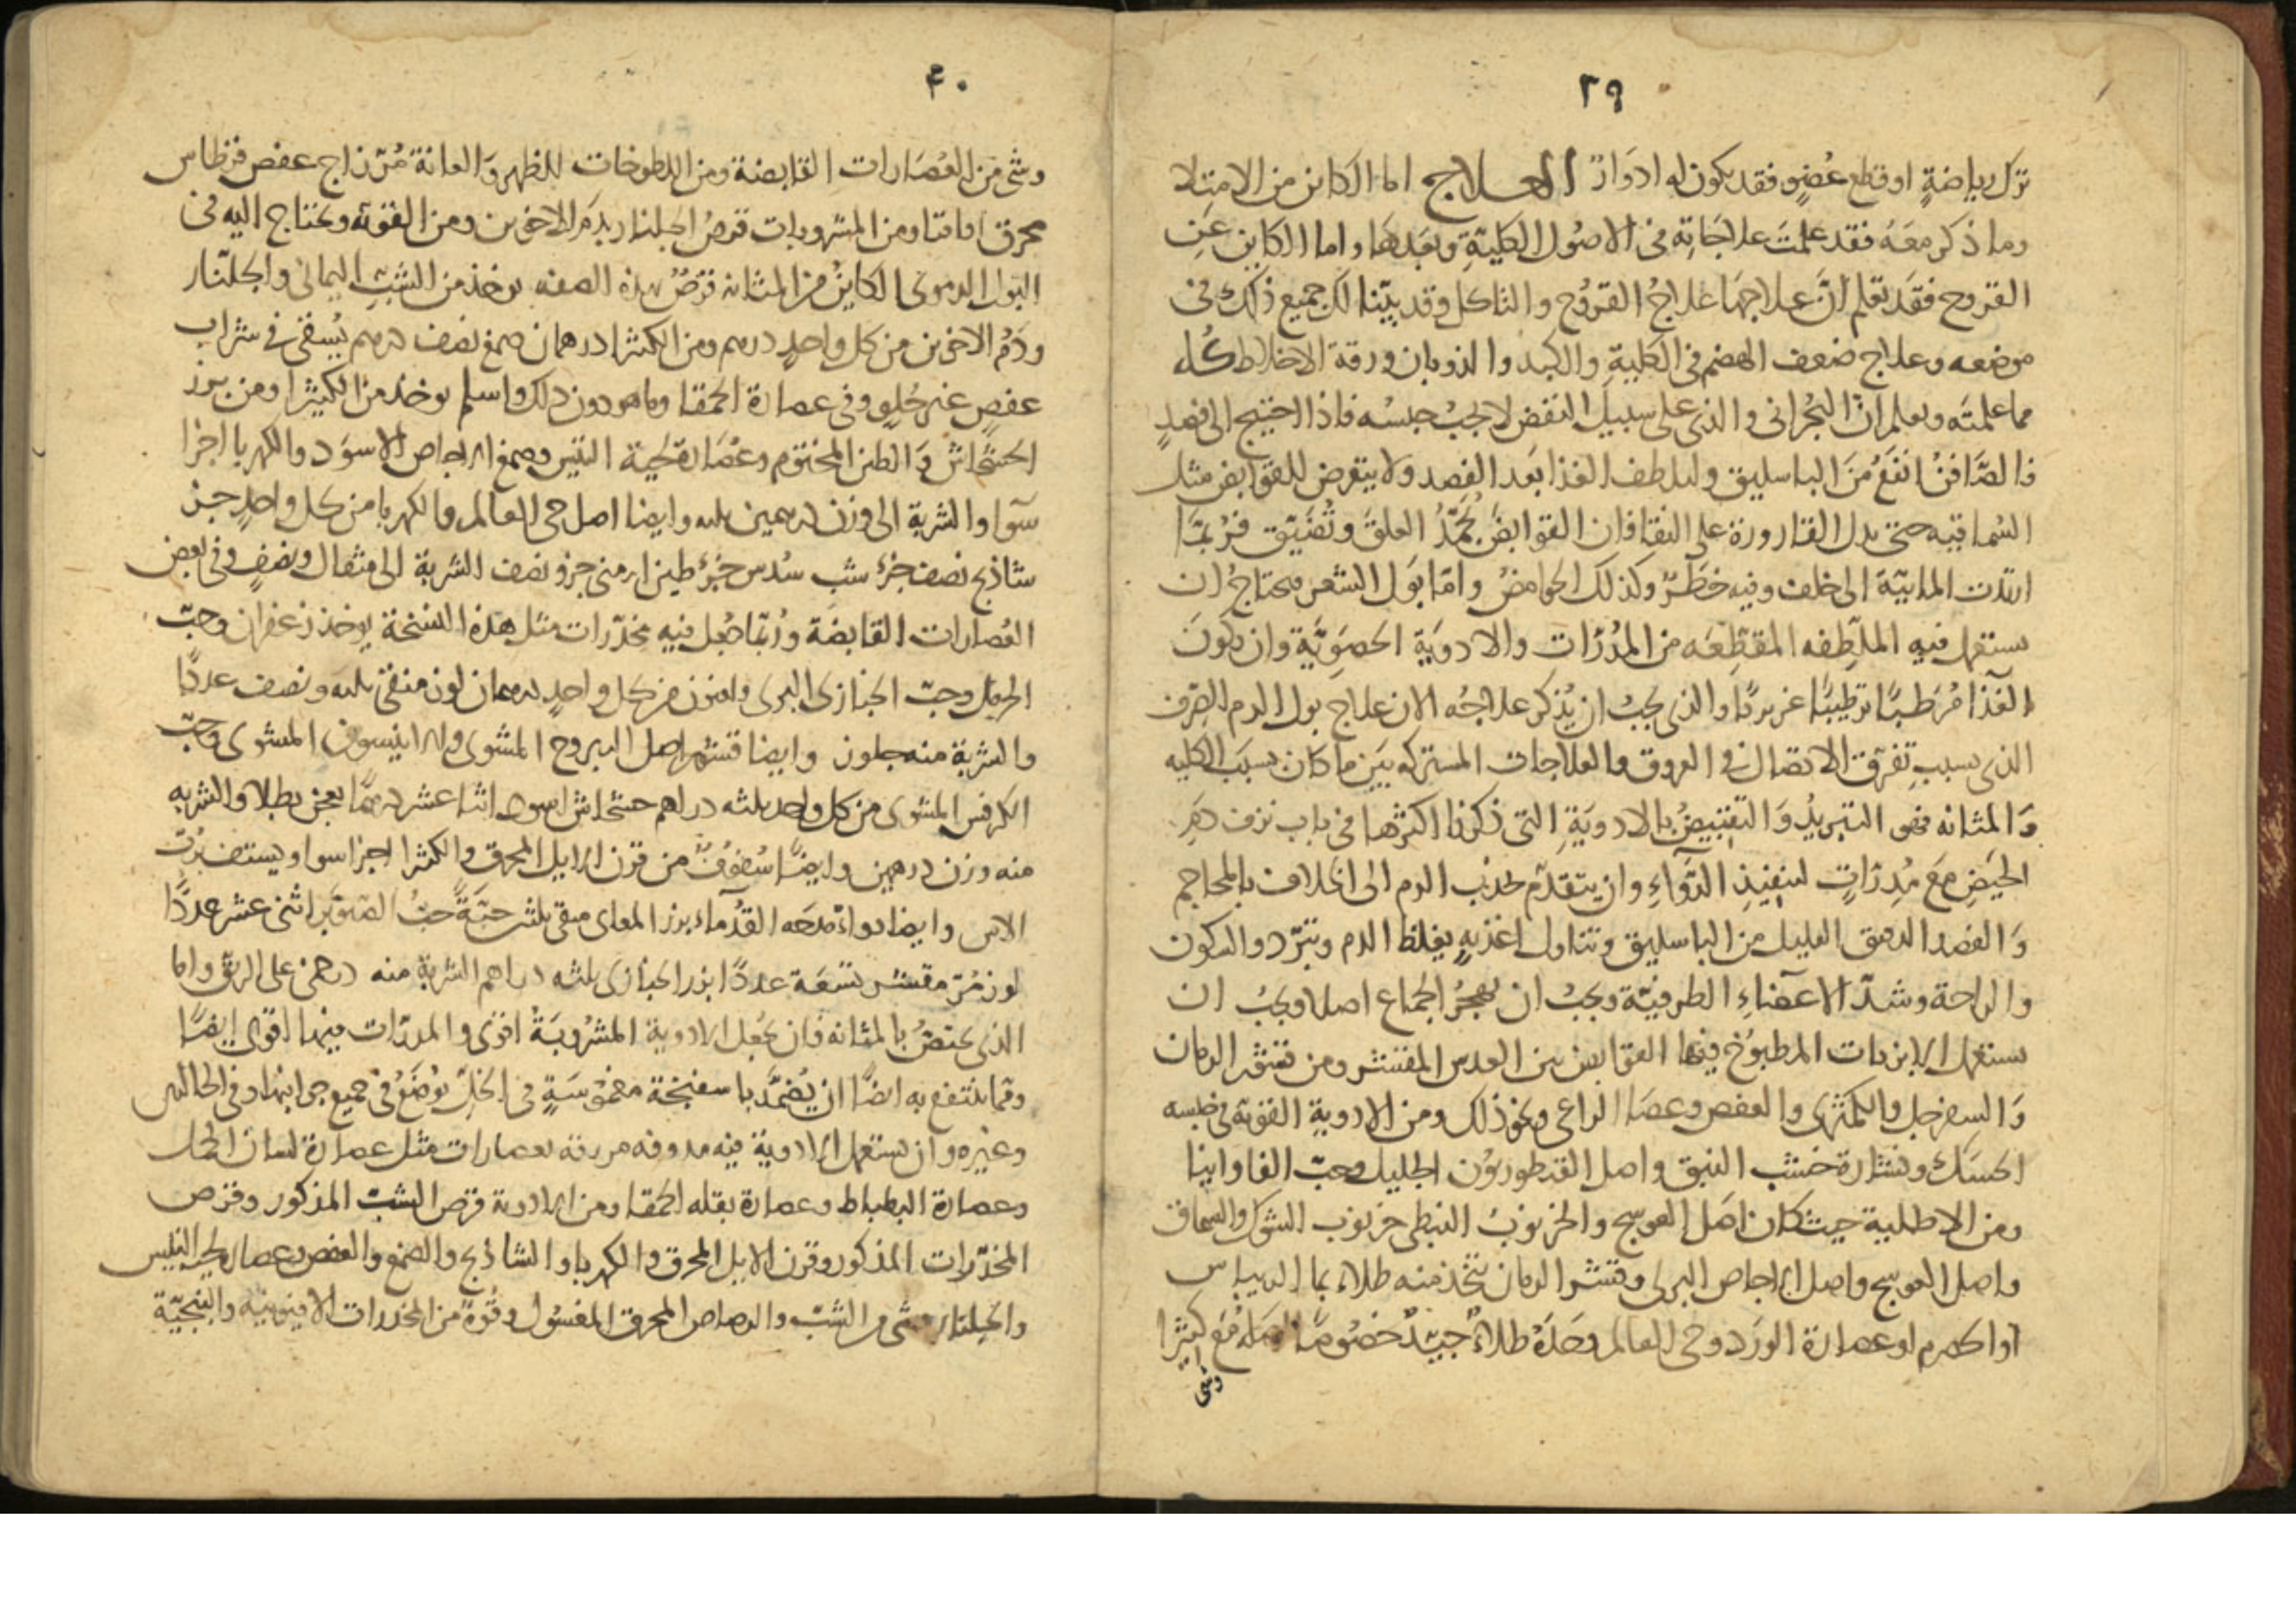 ٣٩
ترك رياضةٍ او قطع عُضوٍ فقد يكون له ادوَارٌ العلاج اما الكاين من الامتلا
وما ذكر معَهُ فقد علمتَ علاجَاتِه فى الاصُول الكليّةِ وبَعدهَا واما الكاين عَن
القروح فقَد تعلم انَّ علاجهَا علاجُ القرُوح والتاكل وقد بيّنا لك جميع ذلك فى
موضعه وعلاج ضعف الهضم فى الكليةِ والكبد والذوبان ورقة الاخلاط كُله
مما علمتَه وتعلم انّ البُحرانى والذى على سبيل النفض لا يجبُ حبسُه فاذا احتيج الى فصدٍ
فالصَّافنُ انفَعُ مِنَ الباسليق وليلطف الغذا بَعد الفصد ولا يتعرض للقوابض مثل
السُماقيه حتى يدل القارورة على النقا فان القوابضَ تُجَمّدُ العلقَ وتُضَيّق فرُبمَا
ارتدت المابيّة الى خلف وفيه خطَرٌ وكذلك الحوامضُ وامّا بَول الشعر فيحتاجُ ان
يستعمل فيه الملَطِّفه المقَطِّعَه من المدُرّات والادويَة الحصَوِيَّة وان يكونَ
الغَذا مُرَطبًا ترطيبًا غريزيًا والذى يجبُ ان يُذكر علاجُه الان علاج بول الدم الصِرف
الذى بسببِ تفرّق الاتصال فى العروق والعلاجات المشتركه بَين ما كان بسبَب الكليه
وَالمثانه فهى التبريدُ وَالتقبيضُ بالادويَةِ التى ذكرنا اكثرها فى باب نزف دَمِ
الحيَضِ مَعَ مُدِرّاتٍ لتنفيذِ الدَّوَاءِ وان يتقدّم بجذب الدم الى الخلاف بالمحاجم
وَالفصد الدقيق القليل من الباسليق وتناول اغذيةٍ يغلظ الدم وتبرّد والسكون
والراحة وشدّ الاعضَاءِ الطرفيّة ويجبُ ان يهجرُ الجماع اصلا ويجبُ ان
يستعمل الابزنات المطبُوخ فيها القوابض من العدس المقشر ومن قشر الرمان
وَالسفرجل والكمّثرى والعفص وعصَا الراعى ونحو ذلك ومن الادوية القوية فى حبسه
الحسَك ونشارة خشب النبق واصل القنطوريُون الجليل وحبّ الفاوانيا
ومن الاطلية حيث كان اصل العوسج والخرنوبُ النبطى خرنوب الشوك والسماق
واصل العوسج واصل الاجاص البرى وقشر الرمان يتخذ منه طلاءٌ بما الريباس
او الحصرم او عصارة الورد وحى العالم وحدَهُ طلاءٌ جيّدٌ خصُوصًا اصله مَع كثيرا
وشى
٤٠
وشى من العُصَارات القابضة ومن اللطوخات للظهر وَالعانة مُرّ زاج عفص قرطاس
محرق اقاقيا ومن المشروبات قرصُ الجلنار بدَم الاخوين ومن القوية ويحتاج اليه فى
البَول الدموى الكاينُ من المثانه قرصٌ بهذه الصفه يوخذ من الشبّ اليمانى والجلّنار
ودَمُ الاخوين من كل واحدٍ درهم ومن الكثيرا درهمان صمغ نصف درهم يُسقى فى شراب
عفصٍ غير حُلوٍ وفى عصارة الحمقا وما هو دون ذلك واسلم يوخذ من الكثيرا ومن بزر
الخشخاشُ وَالطين المختوم وعُصَارة لحية التيس وصمغ الاجاص الاسوَد والكهربا اجزا
سَوا والشربة الى وزن درهمين ثلثه وايضا اصل حى العالم والكهربا من كل واحدٍ جزء
شاذنج نصف جزء شب سُدس جُزء طين ارمنى جزو نصف الشربة الى مثقال ونصفٍ وفى بعض
العُصَارات القابضَة ورُبما جُعل فيه مخدّرات مثل هذه النسخة يوخذ زعفران وحبّ
الحرمل وحبّ الخبازى البرى وافيون من كل واحدٍ درهمان لوز منقى ثلثه ونصف عددًا
والشربة منه جلوز وايضا قشر اصل اليبروح المشوى والانيسون المشوى وحبّ
الكرفس المشوى من كل واحد ثلثه دراهم خشخاش اسود اثنا عشر درهمًا يعجن بطلا والشربه
منه وزن درهمين وايضًا سُفوُفٌ من قرن الايل المحرق والكثيرا اجزا سوا ويستف برُبّ
الاس وايضا دواء مدحَه القدُمآء بزر المعاى منقى ثلثين حبّةً حبّ الصنوبَر اثنى عشر عددًا
لوز مُرّ مقشر تسعَة عددًا بزر الخبازى ثلثه دراهم الشربة منه درهمىن على الريق واما
الذى يختصُ بالمثانه فان يجُعل الادوية المشرُوبَةُ اقوى والمدرّات فيها اقوى ايضًا
ومما ينتفع به ايضًا ان يُضَمَّدَ باسفنجَة مغموُسَةٍ فى الخلّ يُوضَعُ فى جميع جوانبها وفى الحالبين
وغيره وان يستعمل الادوية فيه مدوفه مزرقه بعصارات مثل عصارة لسان الحمل
وعصارة البطباط وعصارة بقله الحمقا ومن الادوية قرص الشبّ المذكور وقرص
المخدّرات المذكور وقرن الايل المحرق والكهربا والشاذنج والصمغ والعفص وعصارة لحية التيس
والجلنار وشى من الشبّ والرصاص المحرق المغسُول وقُوةً من المخدرات الافيونيّة والبنجيّة